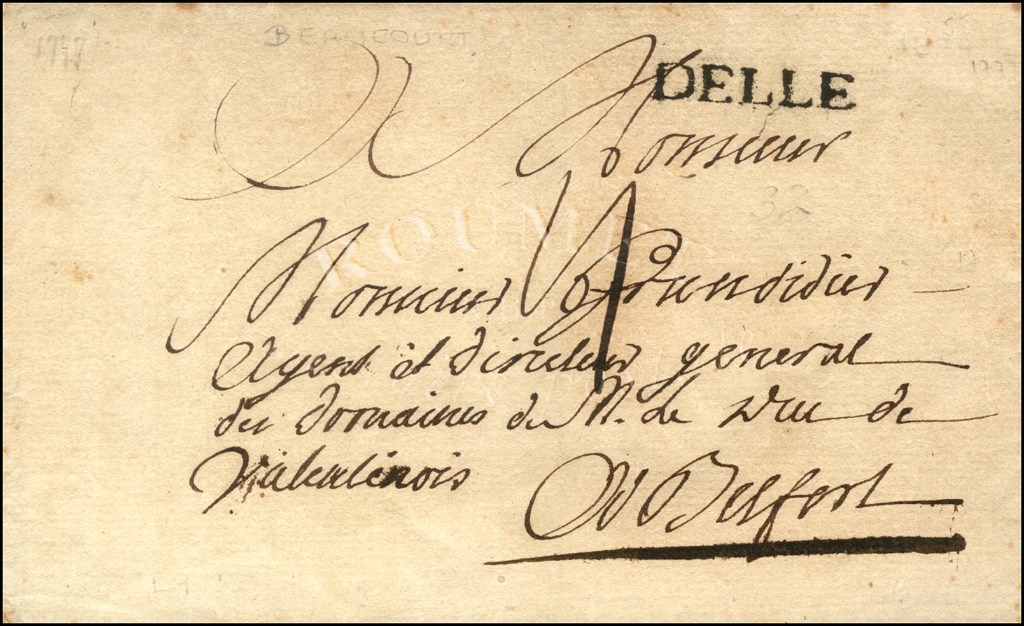 1777
BEAUCOURT
DELLE
A Monsieur
Monsieur
agent et directeur general
des domaines de M. le Duc de
Valentinois
A Belfort
ROUMET